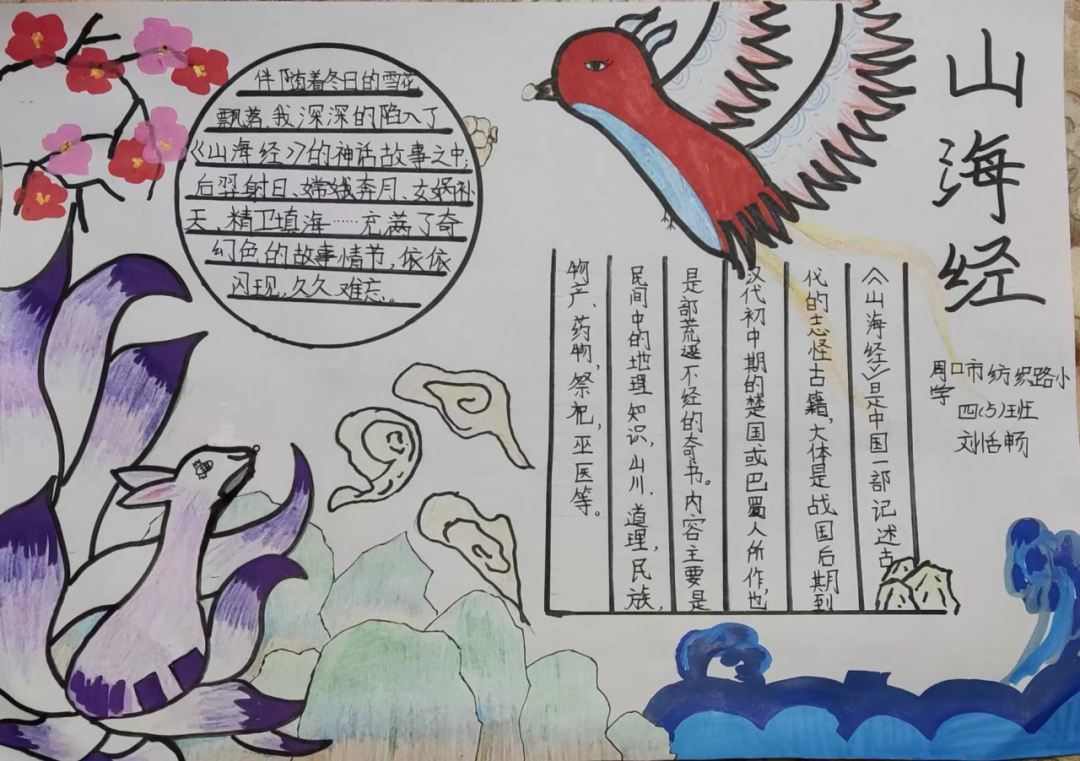 山海经
伴随着冬日的雪花
飘落,我深深的陷入了
《山海经》的神话故事之中,
后羿射日、嫦娥奔月、女娲补
天、精卫填海……充满了奇
幻色的故事情节,依依
闪现。久久难忘。
《山海经》是中国一部记述古
代的志怪古籍,大体是战国后期到
汉代初中期的楚国或巴蜀人所作,也
是部荒诞不经的奇书。内容主要是
民间中的地理知识,山川、道理,民族,
物产、药物,祭祀,巫医等。
周口市纺织路小
学
四(5)班
刘恬畅